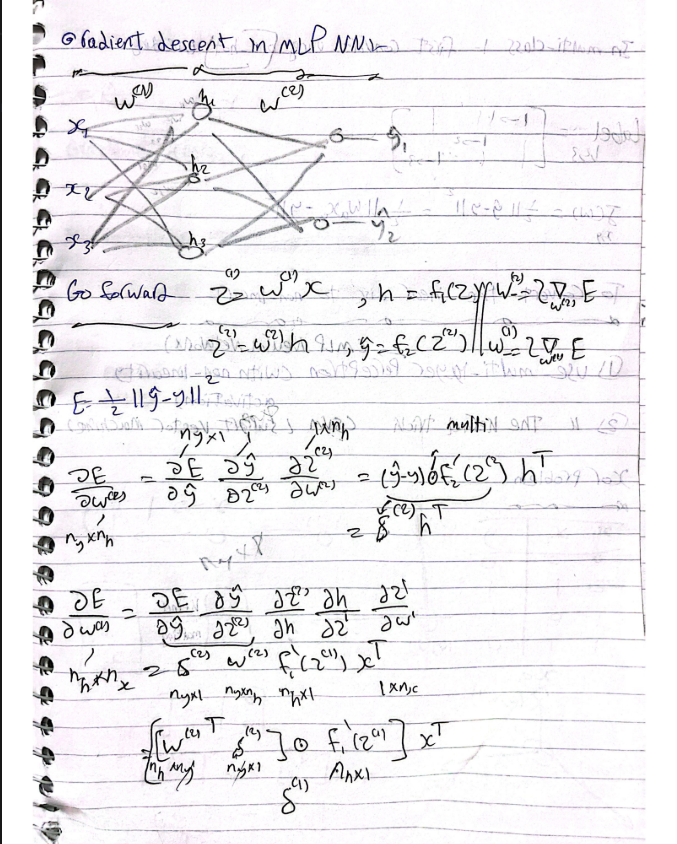 Gradient descent in MLP NNs
w⁽¹⁾ w⁽²⁾
x₁ h₁ ŷ₁
x₂ h₂
x₃ h₃ ŷ₂
Go forward z⁽¹⁾ = w⁽¹⁾x , h = f₁(z) w⁽²⁾ -= η ∇_w⁽²⁾ E
z⁽²⁾ = w⁽²⁾h , ŷ = f₂(z⁽²⁾) w⁽¹⁾ -= η ∇_w⁽¹⁾ E
E = ½ ||ŷ-y||²
n_y×1 1×n_h
∂E/∂w⁽²⁾ = ∂E/∂ŷ ∂ŷ/∂z⁽²⁾ ∂z⁽²⁾/∂w⁽²⁾ = (ŷ-y) ⊙ f₂'(z⁽²⁾) hᵀ
n_y×n_h = δ⁽²⁾ hᵀ
∂E/∂w⁽¹⁾ = ∂E/∂ŷ ∂ŷ/∂z⁽²⁾ ∂z⁽²⁾/∂h ∂h/∂z¹ ∂z¹/∂w¹
n_h×n_x = δ⁽²⁾ w⁽²⁾ f₁'(z⁽¹⁾) xᵀ
n_y×1 n_y×n_h n_h×1 1×n_x
= [[w⁽²⁾ᵀ δ⁽²⁾] ⊙ f₁'(z⁽¹⁾)] xᵀ
n_h×n_y n_y×1 n_h×1
δ⁽¹⁾